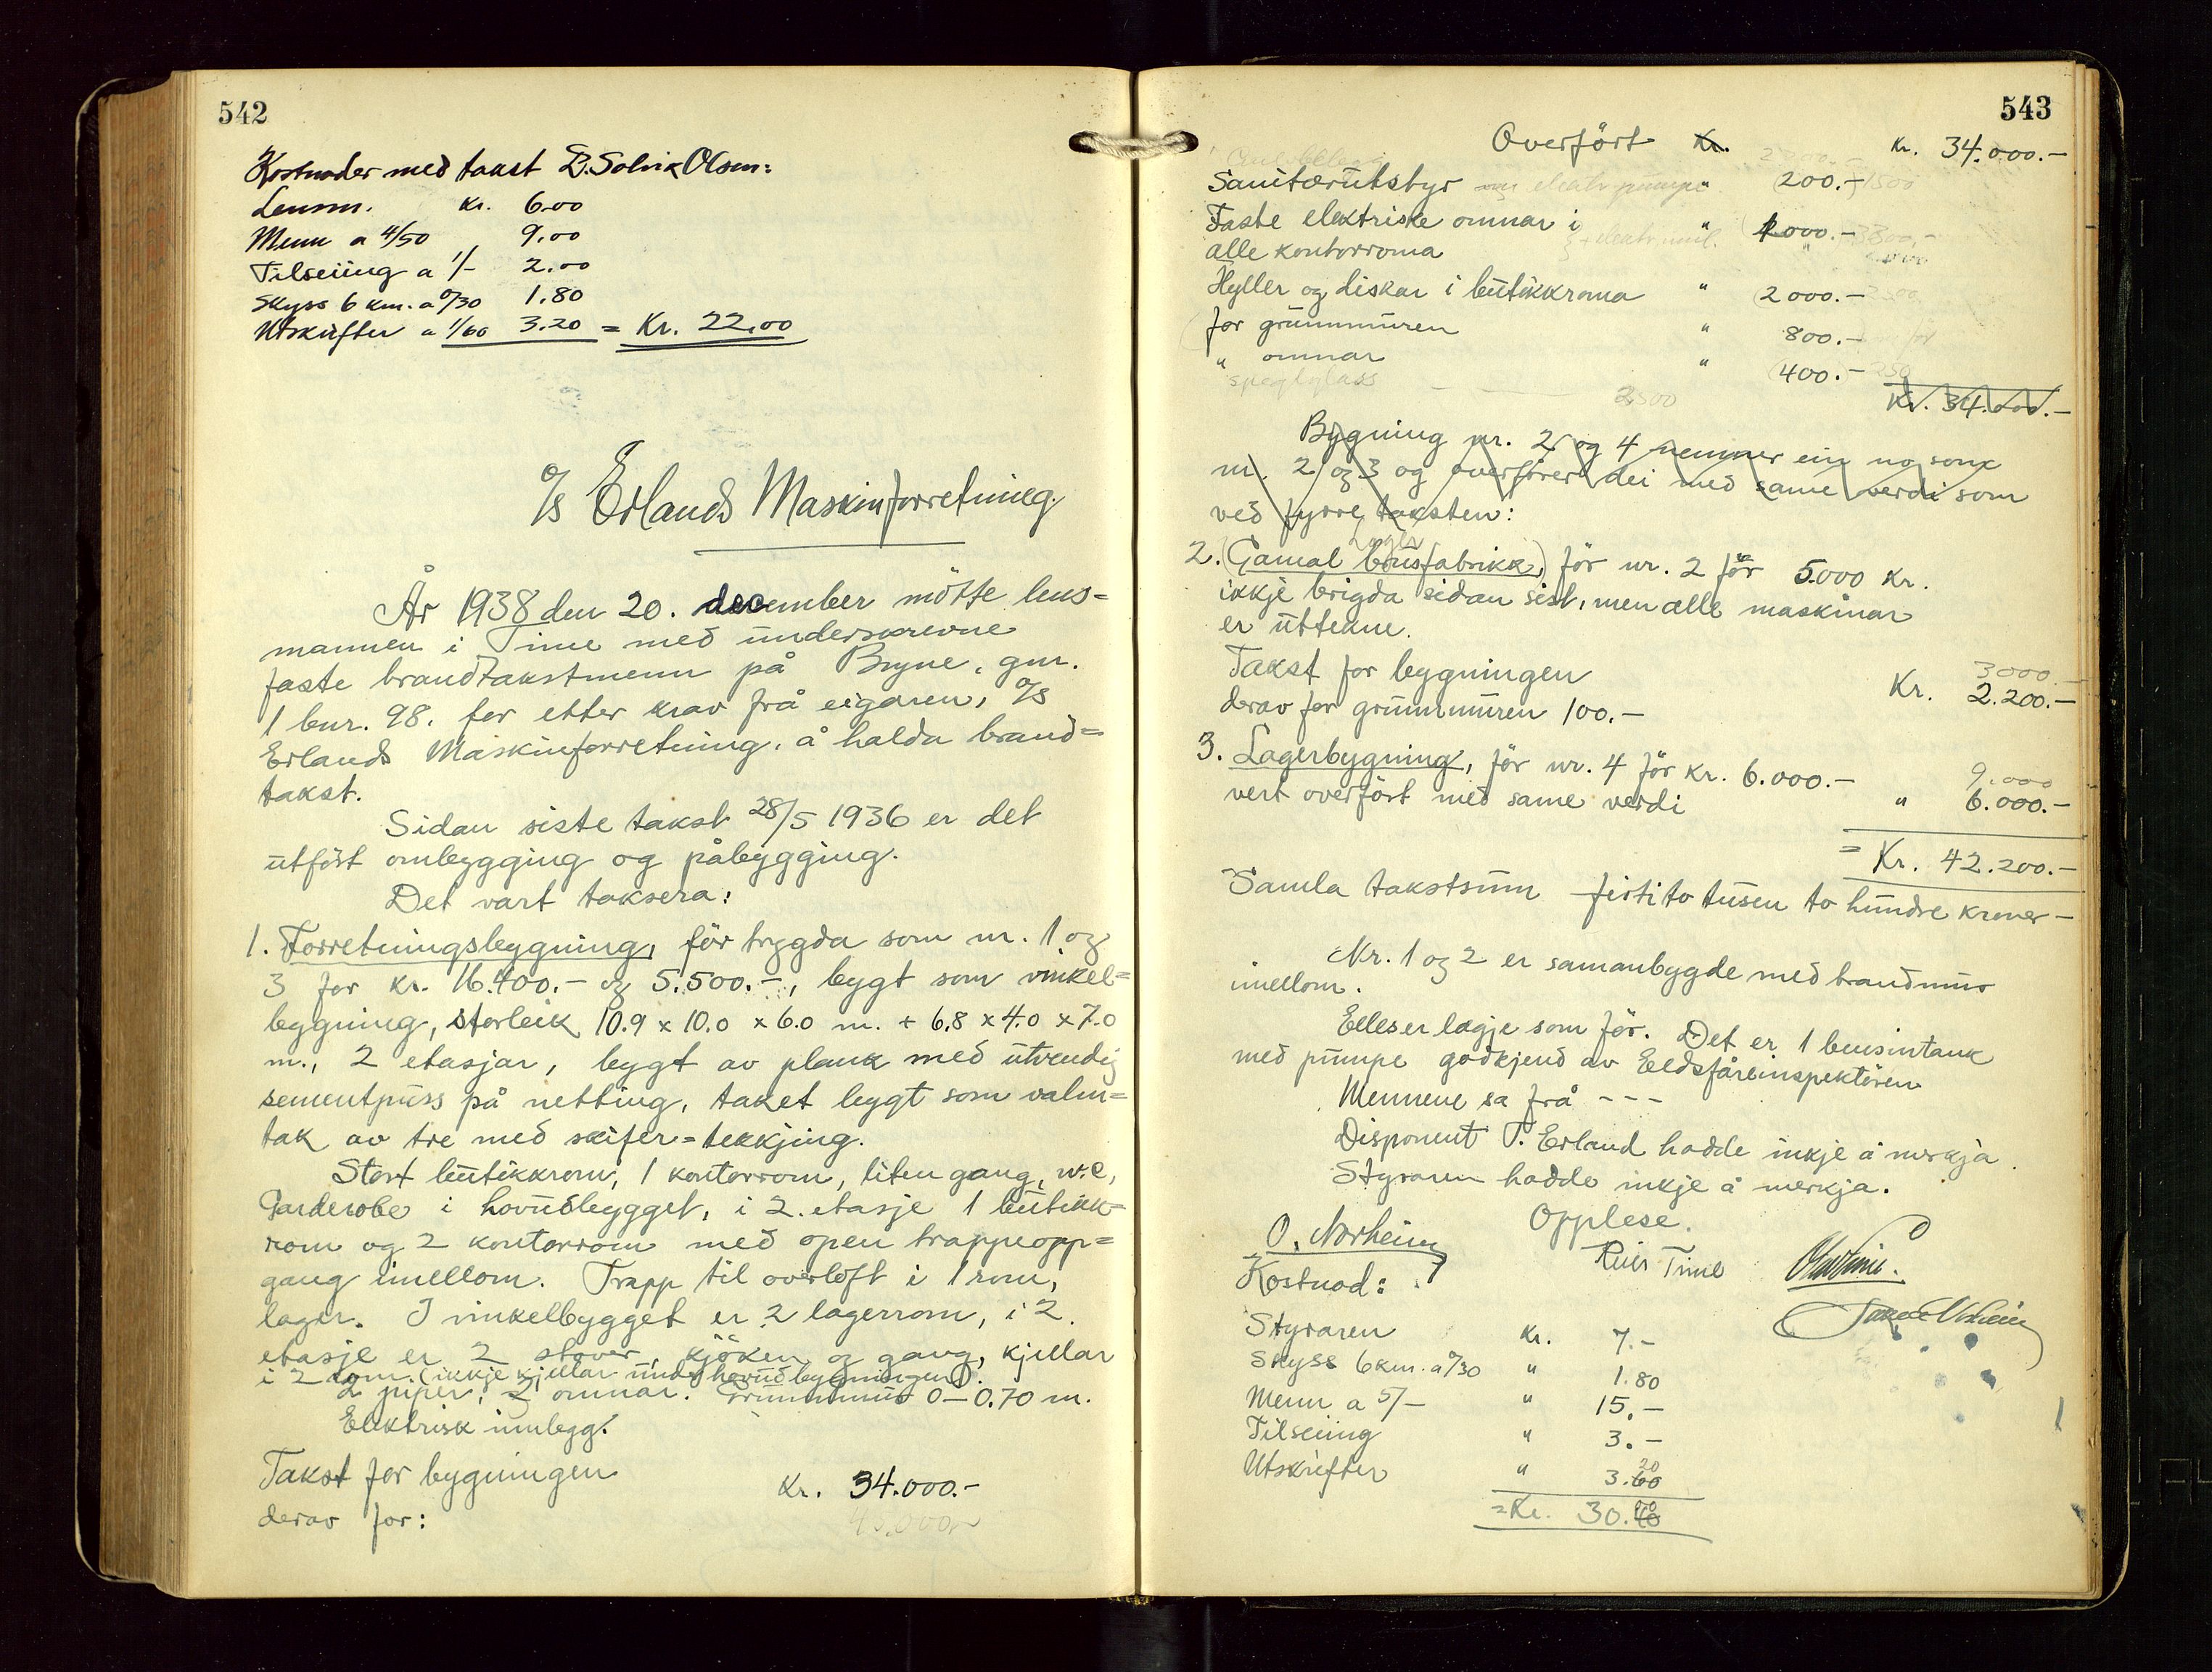 542
Kostnader med takst L. Solvik Olsen:
Lensm. kr. 6.00
Menn a 4/50 9.00
Tilseiing a 1/- 2.00
Skyss 6 km. a 0/30 1.80
Utskrifter a 1/60 3.20 = Kr. 22.00
A/S Erlands Maskinforretning.
År 1938 den 20. december mötte lens=
mannen i Time med underskrevne
faste brandtakstmenn på Bryne, gnr.
1 bnr. 98. for etter krav frå eigaren, A/S
Erlands Maskinforretning, å halda brand=
takst.
Sidan siste takst 28/5 1936 er det
utfört ombygging og påbygging.
Det vart taksera:
1. Forretningsbygning, för trygda som nr. 1 og
3 for kr. 16.400.- og 5.500.-, bygt som vinkel=
bygning, storleik 10.9 x 10.0 x 6.0 m. + 6.8 x 4.0 x 7.0
m., 2 etasjar, bygt av plank med utvendig
sementpuss på netting, taket bygt som valm=
tak av tre med skifer=tekkjing.
Stort butikkrom, 1 kontorrom, liten gang, w.c,
Garderobe i hovudbygget, i 2. etasje 1 butikk=
rom og 2 kontorrom med open trappeopp=
gang imellom. Trapp til overloft i 1 rom,
lager. I vinkelbygget er 2 lagerrom, i 2.
etasje er 2 stover, kjöken og gang, kjellar
i 2 rom. (ikkje kjellar under hovudbygningen).
2 piper, 2 omnar. Grunnmur 0-0.70 m.
Elektrisk innlegg.
Takst for bygningen kr. 34.000.-
45.000.-
derav for:
543
Overfört Kr. Kr. 34.000.-
Sanitærutstyr " 200.- 1500
Faste elektriske omnar i " 1.000.-
alle kontorroma
Hyller og diskar i butikkroma " 2000.-
for grunnmuren " 800.-
" omnar " 400.- 250
speglglass 2500
Kr. 34.000.-
Bygning nr. 2 og 4 nemner ein no som
nr. 2 og 3 og overförer dei med same verdi som
ved fyrre taksten:
lager
2. (Gamal brusfabrikk), för nr. 2 för 5.000 kr.
ikkje brigda sidan sist, men alle maskinar
er uttekne.
3000.-
Takst for bygningen Kr. 2.200.-
derav for grunnmuren 100.-
3. Lagerbygning, för nr. 4 för kr. 6.000.-
9.000
vert overfört med same verdi " 6.000.-
= Kr. 42.200.-
Samla takstsum firtito tusen to hundre kroner-
Nr. 1 og 2 er samanbygde med brandmur
imellom.
Elles er lagje som för. Det er 1 bensintank
med pumpe godkjend av Eldsfåreinspektören
Mennene sa frå - - -
Disponent T. Erland hadde inkje å merkja.
Styraren hadde inkje å merkja.
Opplese.
O. Norheim
Kostnad:
Styraren kr. 7.-
Skyss 6 km. a 0/30 " 1.80
Menn a 5/- " 15.-
Tilseiing " 3.-
20
Utskrifter " 3.60
= Kr. 30.